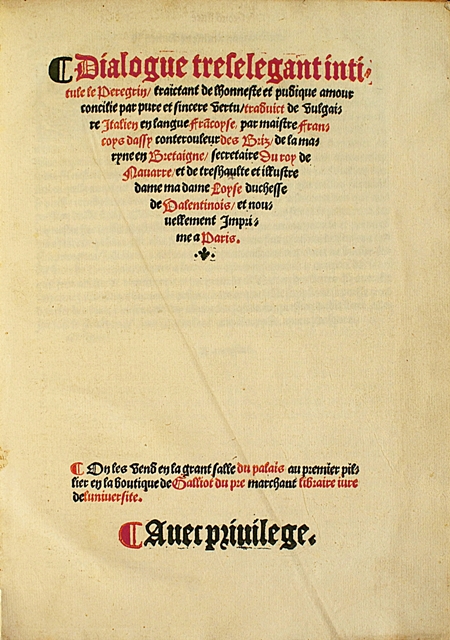 Dialogue treselegant inti-
tule le Peregrin/ traictant de lhonneste et pudique amour
concilie par pure et sincere vertu/ traduict de vulgai-
re Italien en langue Frãcoyse/ par maistre Fran-
coys dassy conterouleur des Briz/ de la ma-
ryne en Bretaigne/ secretaire Du roy de
Nauarre/ et de treshaulte et illustre
dame ma dame Loyse duchesse
de Valentinois/ et nou-
uellement Impri-
me a Paris.
On les vend en la grant salle du palais au premier pil-
lier en la boutique de Galliot du pre marchant libraire iure
de luniuersite.
Auec priuilege.